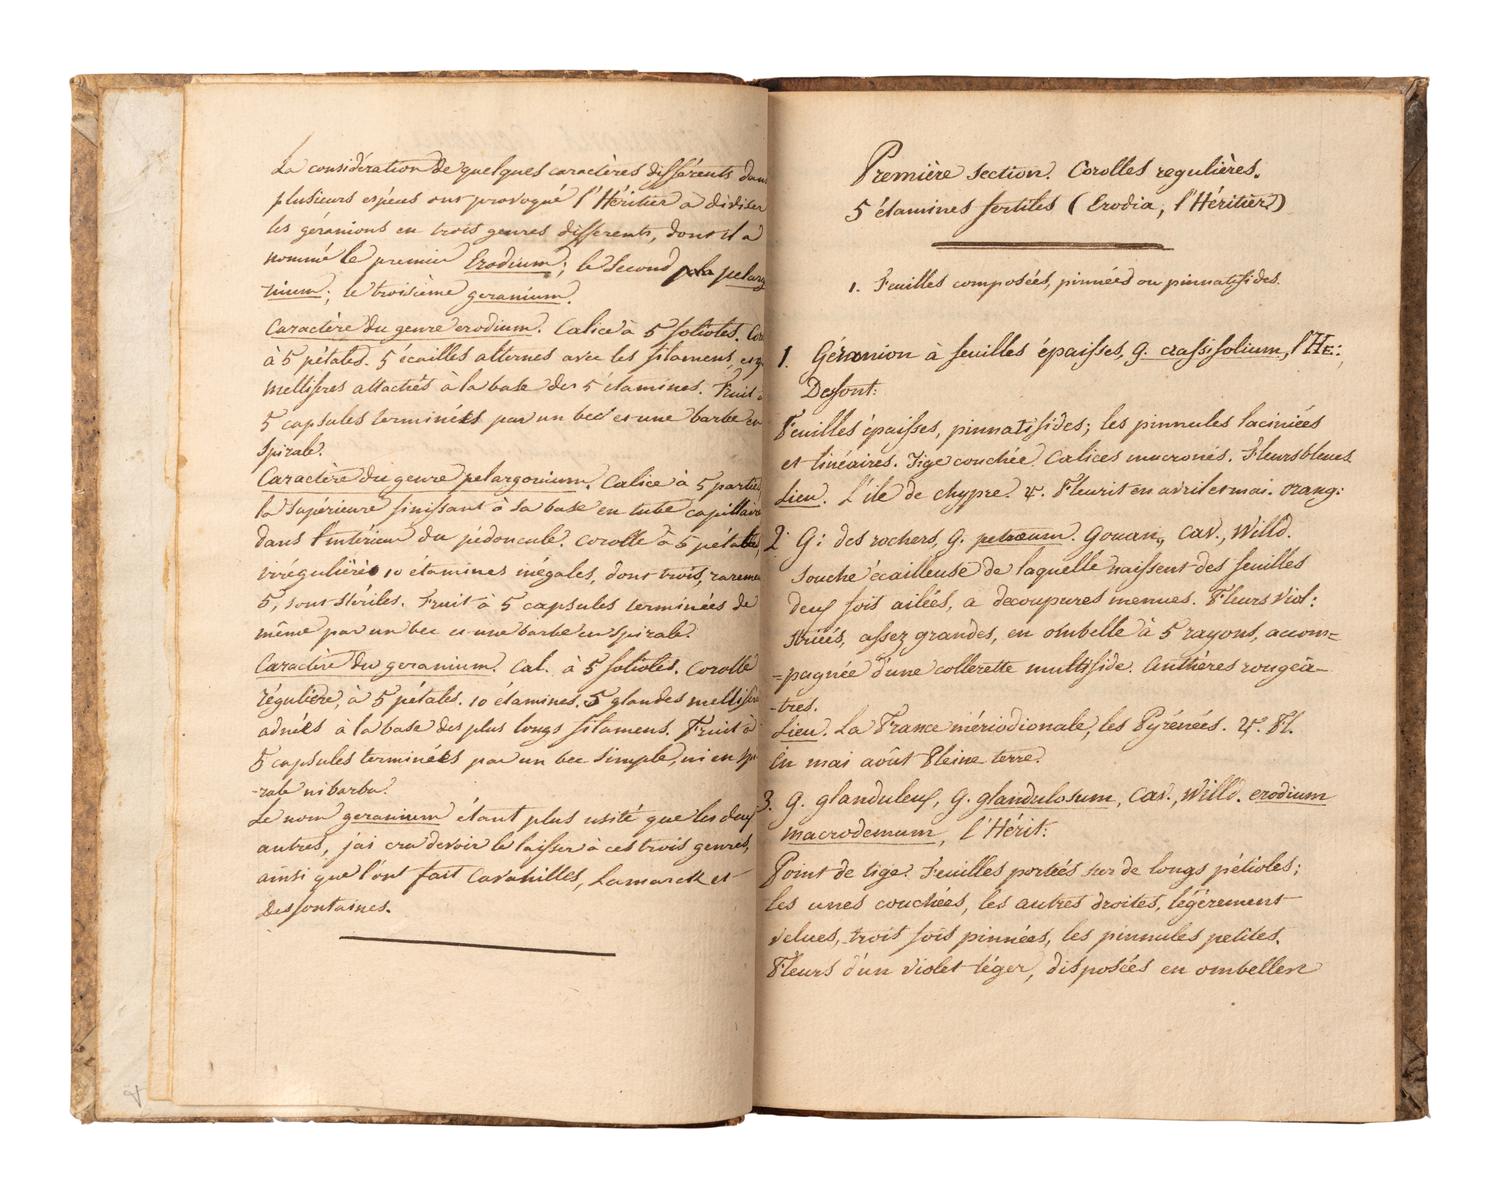 La considération de quelques caractères différents dans
plusieurs espèces ont provoqué l'Héritier a diviser
les géranions en trois genres différents, dont il a
nommé le premier Erodium; le second pelarg
nium; le troisième geranium.
Caractère du genre erodium. Calice à 5 folioles. Cor
à 5 pétales. 5 écailles alternes avec les filamens, et 5 g
mellifres attachés à la base des 5 étamines. Fruit à
5 capsules terminées par un bec et une barbe en
spirale.
Caractère du genre pelargonium. Calice à 5 parties
la supérieure finissant à sa base en tube capillaire
dans l'intérieur du pédoncule. Corolle à 5 pétales,
irreguliere 10 étamines inégales, dont trois, rareme
5, sont stériles. Fruit à 5 capsules terminées de
même par un bec et une barbe en spirale.
Caractère du geranium. Cal. à 5 folioles. Corolle
régulière, à 5 pétales. 10 étamines. 5 glandes mellifere
adnées à la base des plus longs filamens. Fruit à
5 capsules terminées par un bec simple, ni en spi
-rale ni barbu.
Le nom geranium étant plus usité que les deux
autres, j'ai cru devoir le laisser à ces trois genres,
ainsi que l'ont fait Cavanilles, Lamarck et
Desfontaines.
Première section. Corolles regulières.
5 étamines fertiles (Erodia, l'Héritier)
1. Feuilles composées, pinnées ou pinnatifides.
1. Géranion à feuilles épaisses, G. crassifolium, l'HE:,
Desfont:
Feuilles épaisses, pinnatifides; les pinnules laciniées
et linéaires. Tige couchée. Calices mucronés. Fleurs bleues
Lieu. L'ile de chypre. ♃. Fleurit en avril et mai. Orang:
2. G: des rochers, G. petræum. Gouan., Cav., Willd.
Souche écailleuse de laquelle naissent des feuilles
deux fois ailées, a decoupures menues. Fleurs viol:
striées, assez grandes, en ombelle à 5 rayons, accom=
=pagnée d'une collerette multifide. Anthères rougeâ-
-tres.
Lieu. La France mériodionale, les Pyrénées. ♃. Fl.
En mai août Pleine terre.
3. G. glanduleux, G. glandulosum, Cav., Willd. erodium
macrodemum, l'Hérit:
Point de tige. Feuilles portées sur de longs pétioles;
les unes couchées, les autres droites, légérement
velues, trois fois pinnées, les pinnules petites.
Fleurs d'un violet léger, disposées en ombelles